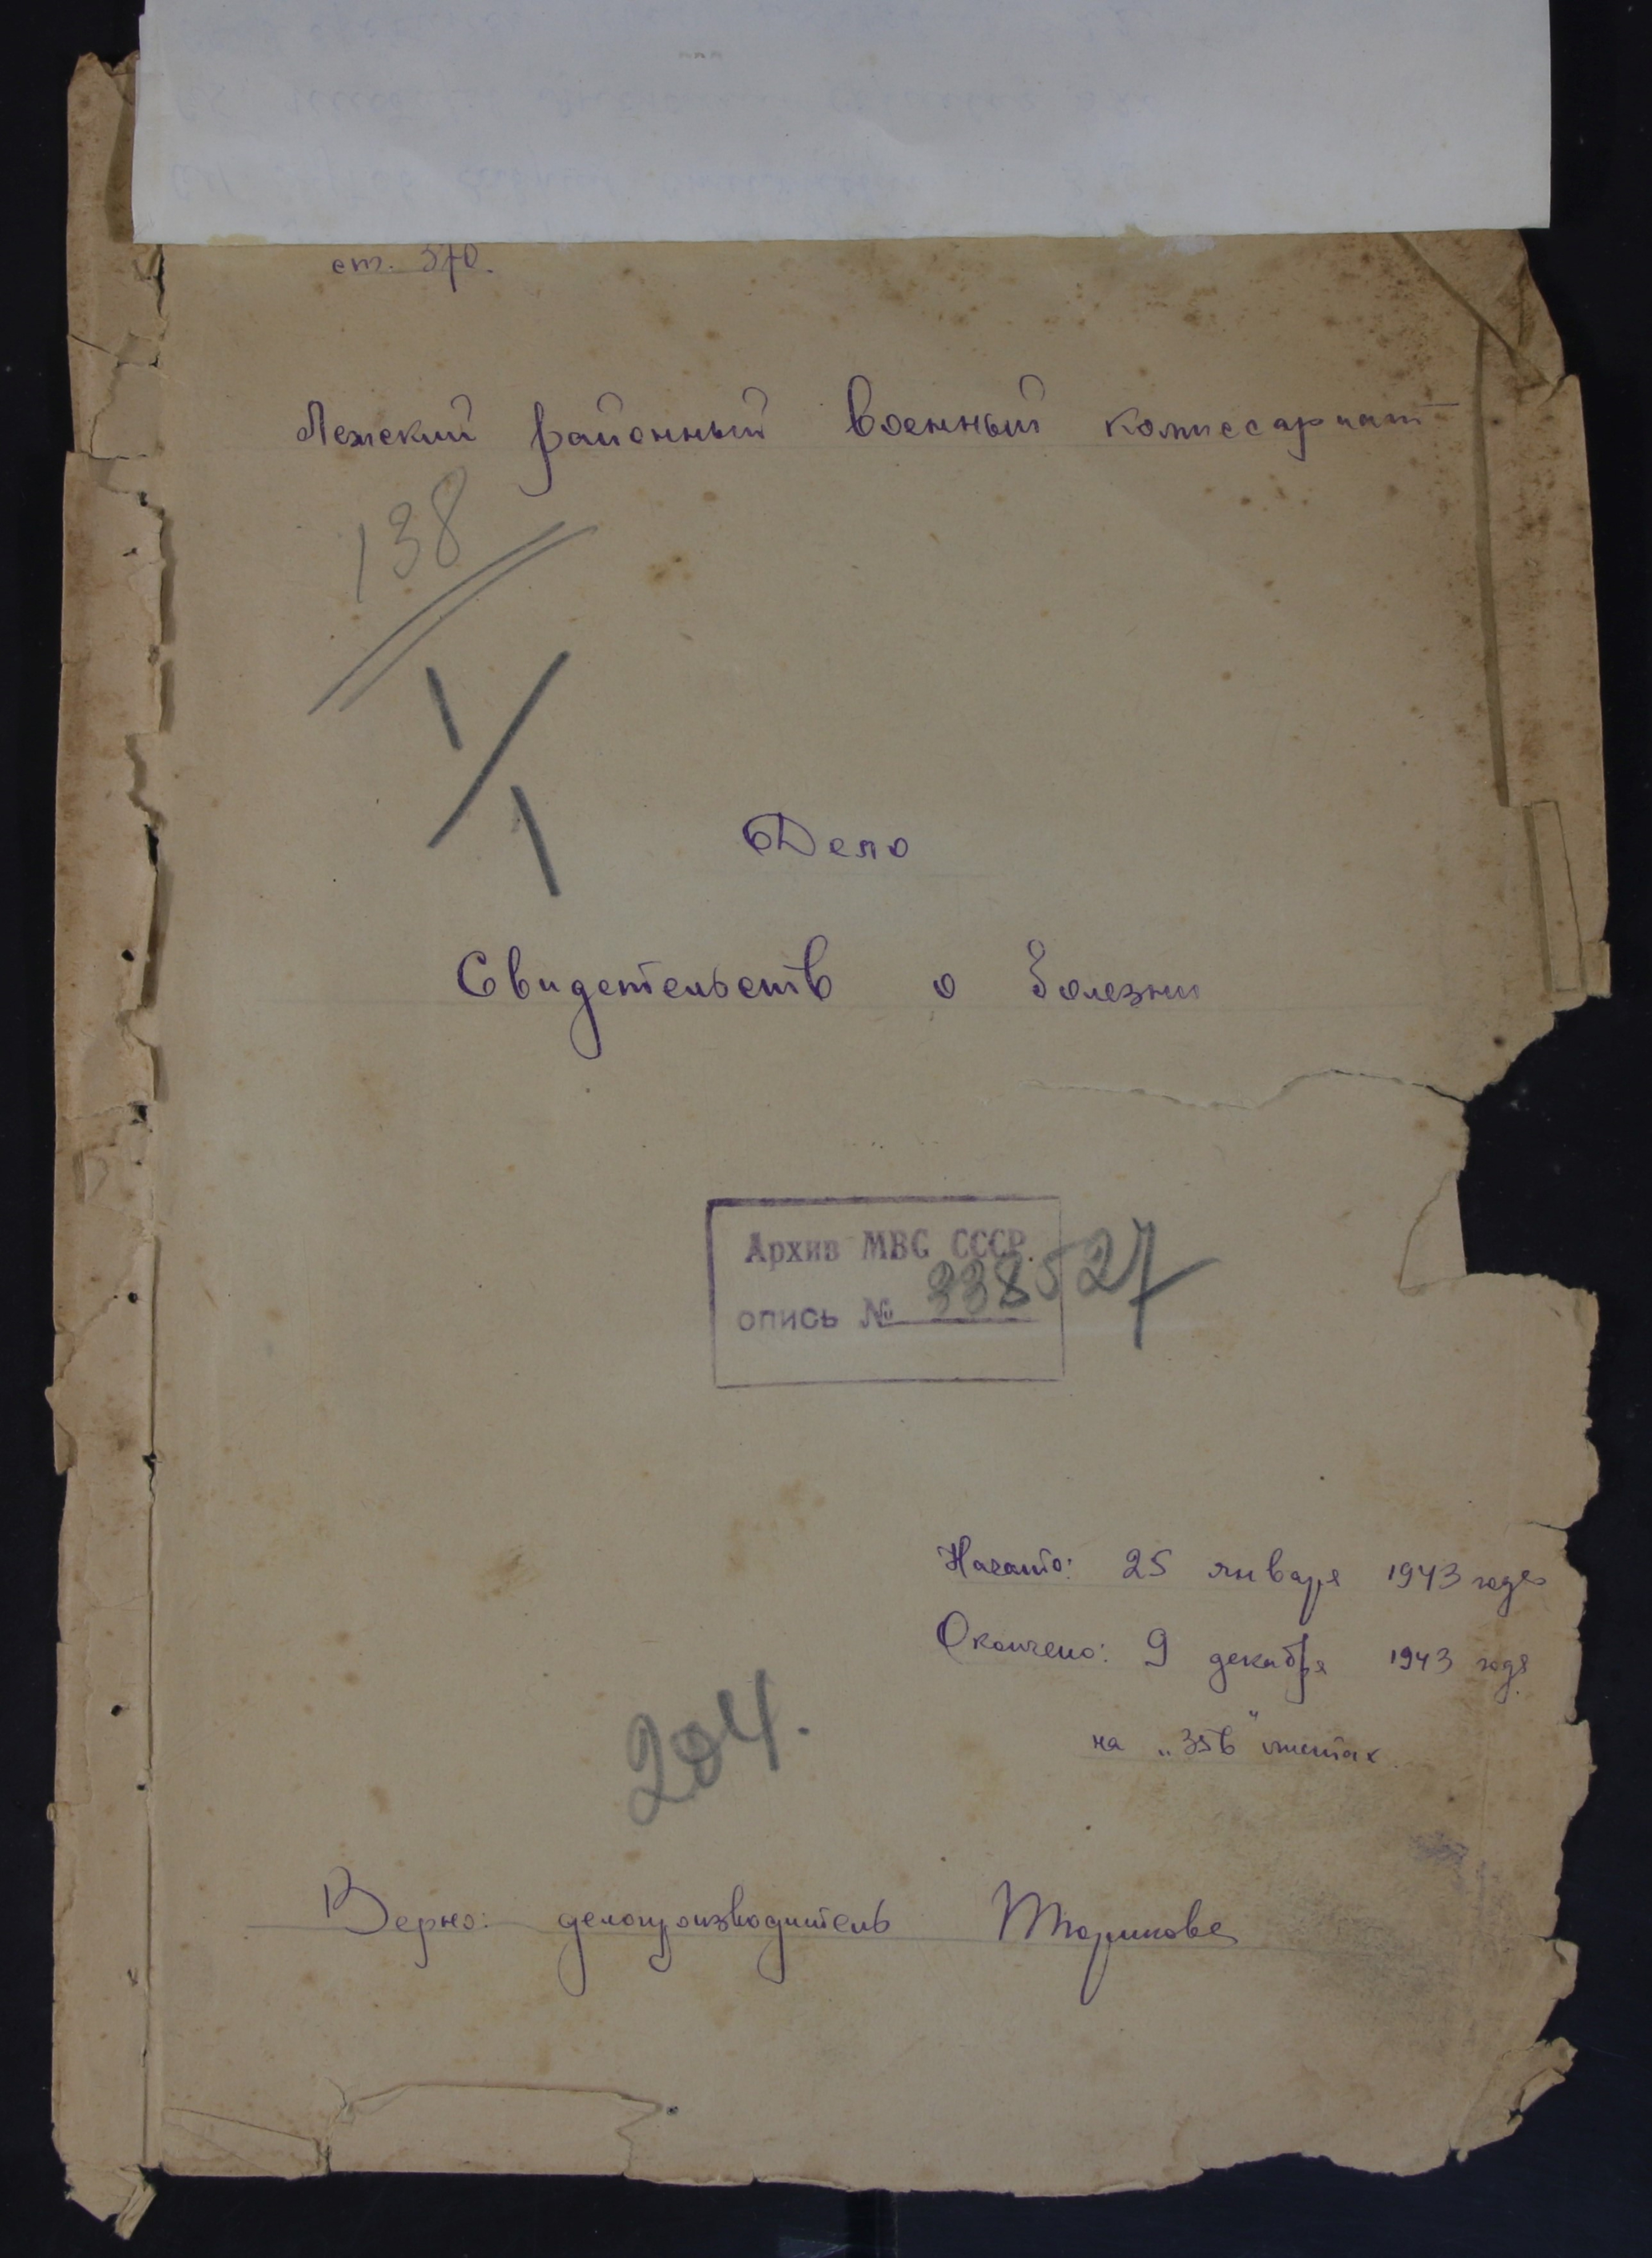 ст. 370.
Лежский районный военный комиссариат
138
1/1
Дело
Свидетельств о болезни
Архив МВС СССР.
опись № 338527
Начато: 25 января 1943 года
Окончено: 9 декабря 1943 года
на „356" листах.
204.
Верно: делопроизводитель